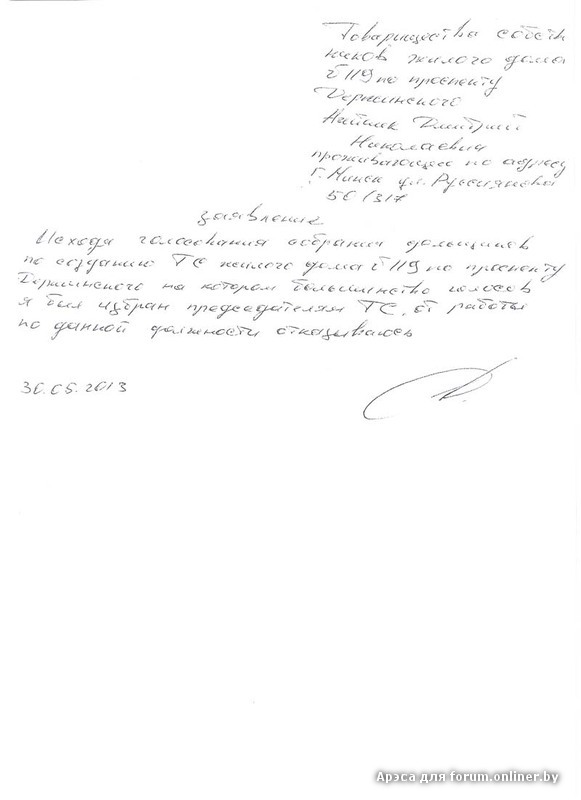 Товарищества собств
ников жилого дома
№ 119 по проспекту
Дзержинского
Дмитрий
Николаевич
проживающего по адресу
г. Минск ул. Руссиянова
50/317
заявление
Исходя голосования собрания дольщиков
по созданию ТС жилого дома № 119 по проспекту
Дзержинского на котором большинство голосов
я был избран председателям ТС, от работы
по данной должности отказываюсь
30.05.2013
Арэса для forum.onliner.by